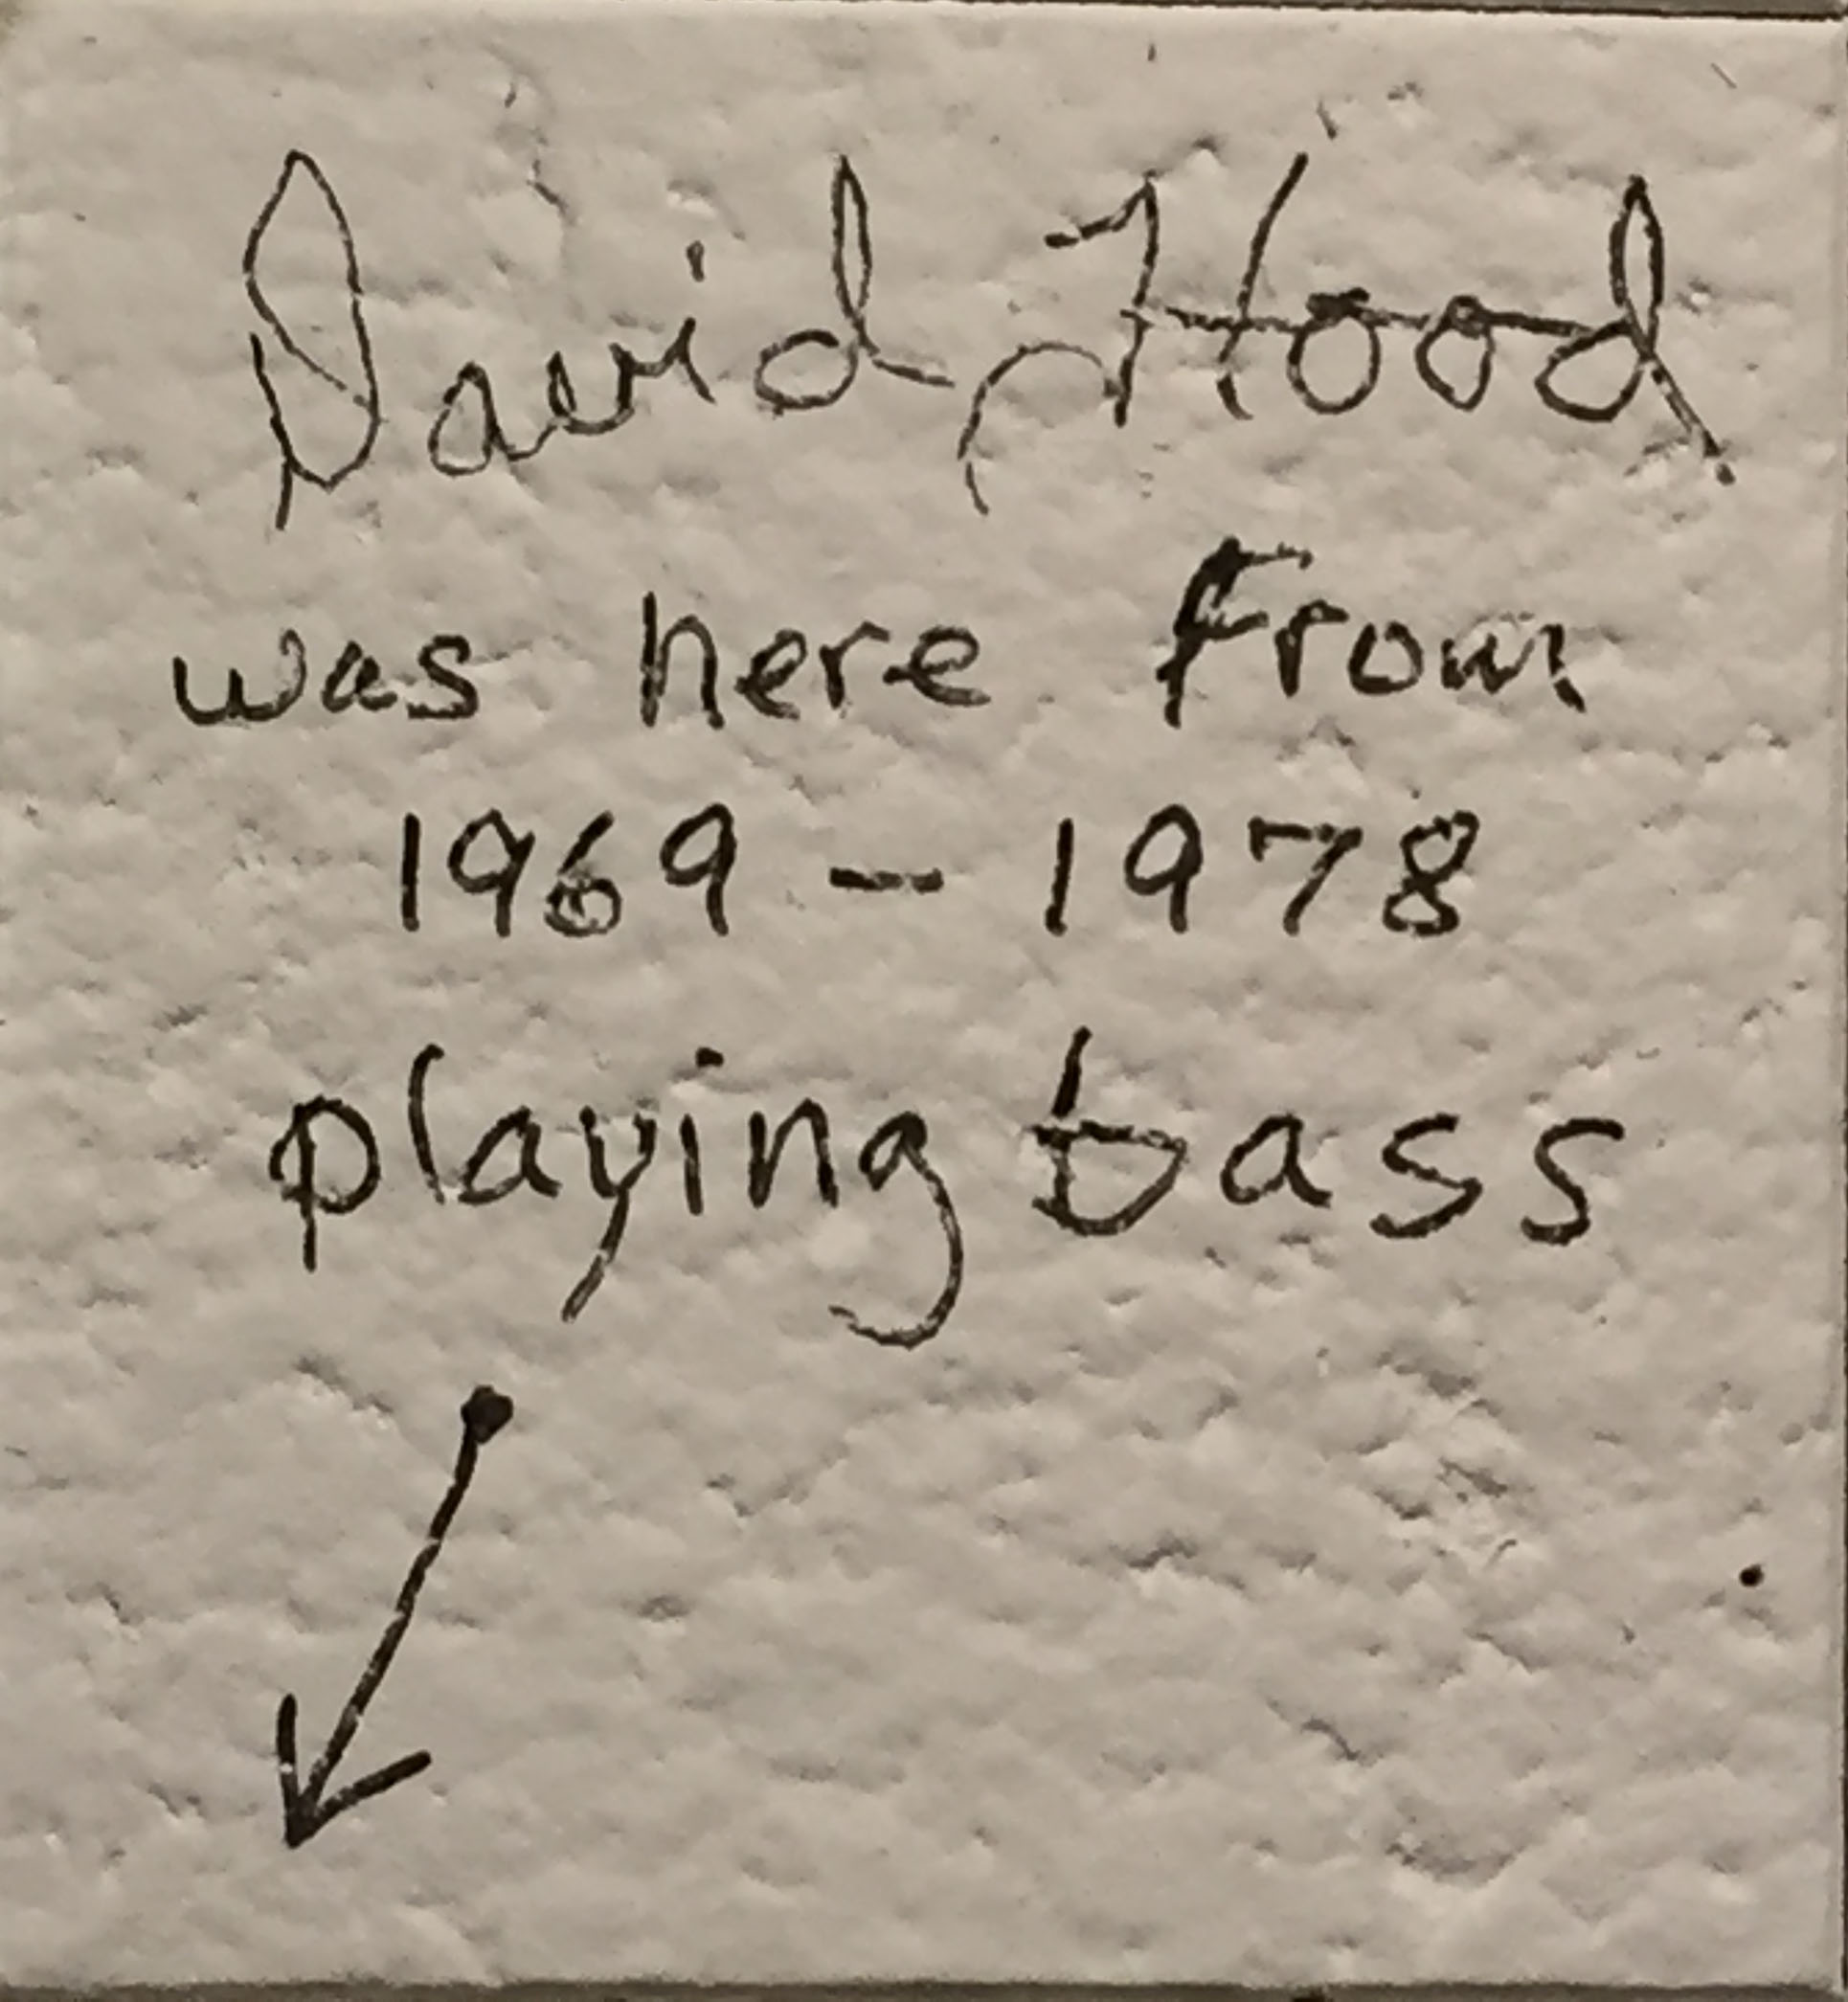 David Hood
was here from
1969 - 1978
playing bass